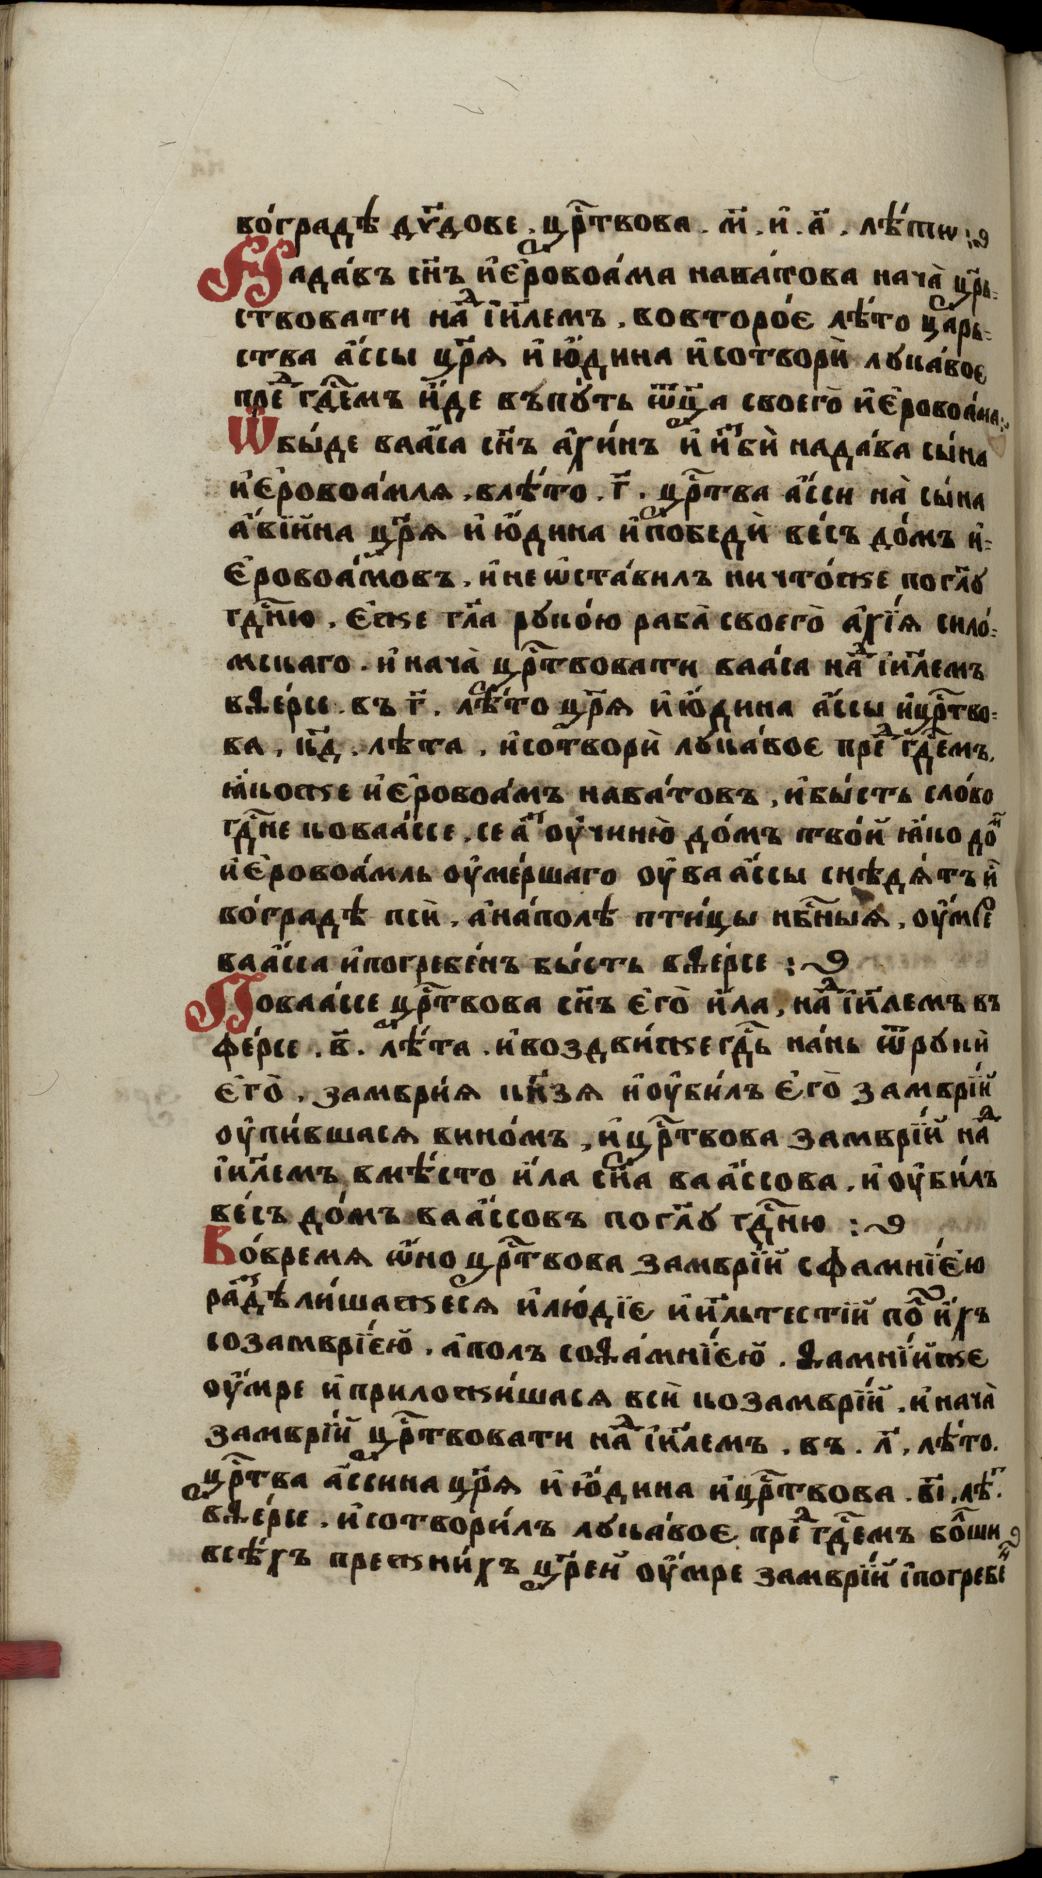 во́градѣ дв҃дове . цр҃твова . м҃ . и҃ . а҃ . лѣ́тѡ :
Нада́въ сн҃ъ и҆є҆ровоа́ма нава́това нача̀ црь҃-
ствовати на́д і҆и҃лемъ . вовторо́є лѣ́то ца́рь-
ства а҆́ссы цр҃я и҆ю҆́дина и҆сотворѝ лука́воє
пре́д гд҇емъ и҆́де въпꙋ́ть ѿц҃а своего̀ и҆є҆ровоа́ма :
Ѡбы́де ваа́са сн҃ъ а҆хи́нъ и҆ и҆збѝ нада́ва сы́на
и҆є҆ровоа́мля . влѣ́то . г҃ . цр҇тва а҆́сси на̀ сы́на
а҆вїи́на цр҃я и҆ю҆́дина и҆победѝ ве́съ до́мъ и҆-
є҆ровоа́мовъ . и҆не ѡ҆ста́вилъ ничто́же погл҃ꙋ
гд҇ню . є҆́же гл҃а рꙋко́ю раба̀ своего̀ а҆хі́я сило́-
мскаго . и҆ нача̀ цр҇твовати ваа́са на́д і҆и҃лемъ
вѳе́рсе . въ г҃ . лѣ́то цр҃я и҆ю҆́дина а҆́ссы и҆цр҇тво-
ва , кд҃ . лѣта , и҆сотворѝ лꙋка́воє пре́д гд҇емъ ,
ꙗ҆́коже и҆є҆ровоа́мъ нава́товъ , и҆бы́сть сло́во
гд҇не коваа́ссе . се а҆́з оу҆чиню̀ до́мъ тво́й ꙗ҆́ко до́м
и҆є҆ровоа́мль оу҆ме́ршаго оу҆ваа́ссы снѣдя́тъ и҆̀
во́градѣ псѝ , а҆на́полѣ пти́цы нб҇ныя , оу҆́мре
ваа́сса и҆погребе́нъ бы́сть вѳе́рсе :
Поваа́ссе цр҇твова сн҃ъ є҆го̀ и҆́ла , на́д і҆и҃лемъ въ
фе́рсе . в҃ . лѣ́та . и҆воздви́же гд҇ь на́нь ѿрꙋкѝ
є҆го̀ . замври́я кн҃зя и҆оу҆би́лъ є҆го̀ замврі́й
оу҆пи́вшася вино́мъ , и҆цр҇твова замврі́й на́д
і҆и҃лемъ вмѣ́сто и҆́ла сн҃а ваа́ссова . и҆ оу҆би́лъ
ве́съ до́мъ ваа́ссовъ погл҃ꙋ гд҇ню :
Во́время ѡ҆́но цр҇твова замврі́й сфамні́єю
ра́здѣли́шажеся и҆лю́діє и҆и҃льтестїи по́л и҆́хъ
созамврі́єю . а҆полъ соѳамні́єю . ѳамні́йже
оу҆́мре и҆приложи́шася всѝ козамврі́й . и҆нача̀
замврі́й цр҇твовати на́д і҆и҃лемъ . въ . л҃ . лѣ́то .
цр҇тва а҆́ссина цр҃я и҆ю҆́дина и҆цр҇твова . в҃і . лѣ́т .
вѳе́рсе . и҆сотвори́лъ лꙋка́воє пре́д гд҇емъ бо́лши
всѣ́хъ прежни́хъ цр҃ей оу҆́мре замврі́й і҆погребе́н